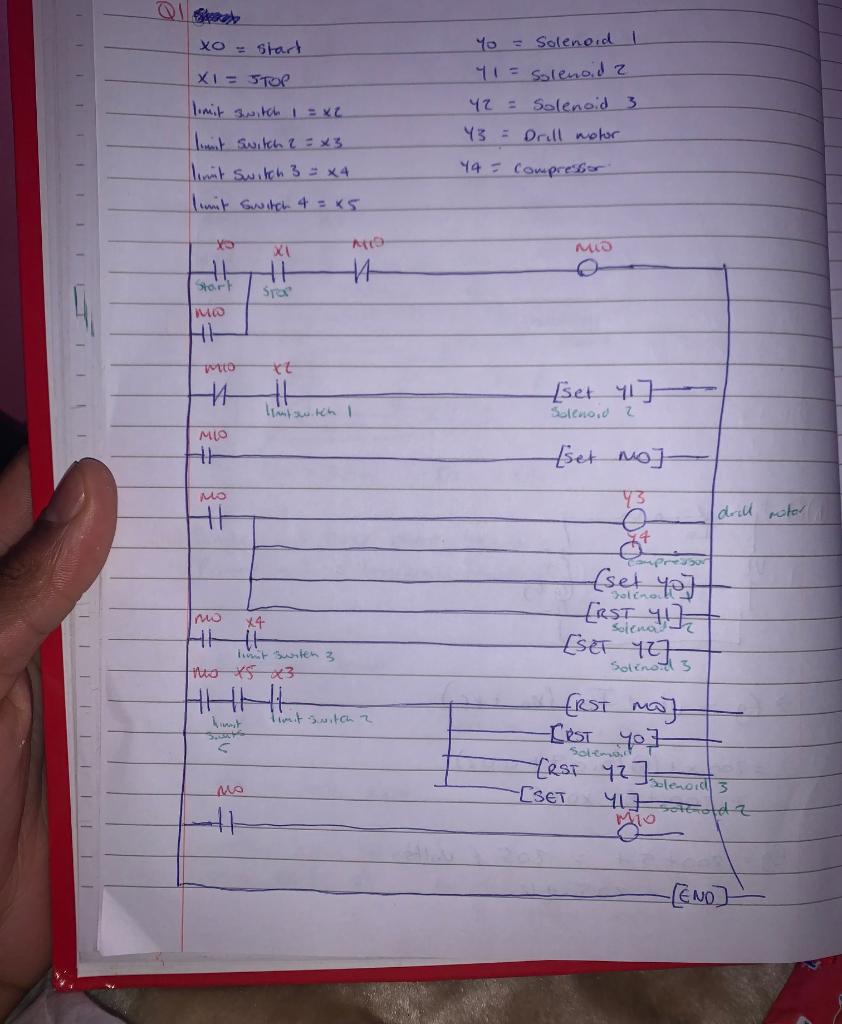 Q1
X0 = Start Y0 = Solenoid 1
X1 = STOP Y1 = Solenoid 2
limit switch 1 = X2 Y2 = Solenoid 3
limit switch 2 = X3 Y3 = Drill motor
limit switch 3 = X4 Y4 = Compressor
limit switch 4 = X5
X0 X1 M10 M10
Start STOP
M10
M10 X2 [Set Y1]
limit switch 1 Solenoid 2
M10 [Set M0]
M0 Y3 drill motor
Y4
Compressor
[Set Y0]
Solenoid 1
[RST Y1]
Solenoid 2
M0 X4 [SET Y2]
limit switch 3 Solenoid 3
M0 X5 X3 [RST M0]
limit limit switch 2
[RST Y0]
Solenoid 1
[RST Y2] Solenoid 3
[SET Y1] Solenoid 2
M0 M10
[END]